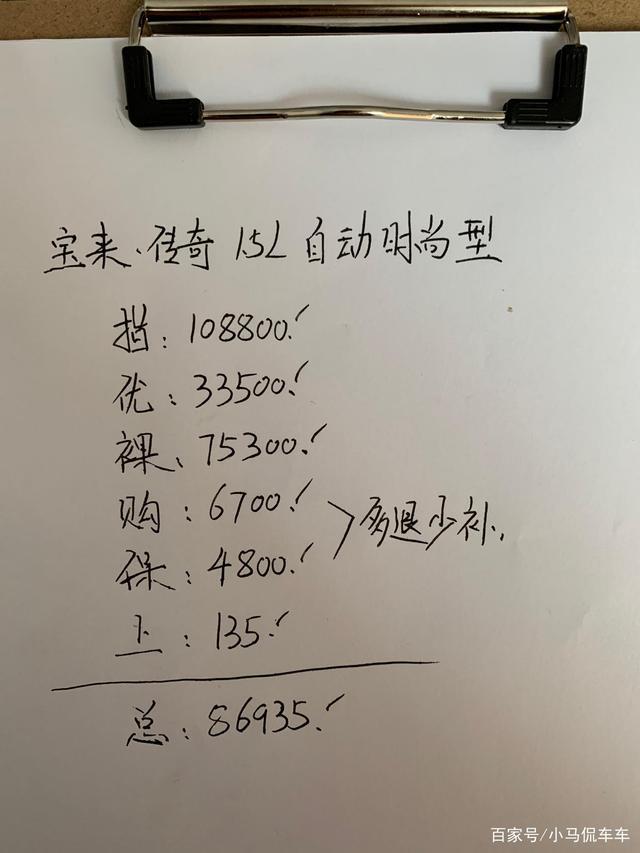 宝来·传奇 1.5L 自动时尚型
指：108800.
优：33500.
裸：75300.
购：6700.
保：4800.
多退少补.
上：135.
总：86935.
百家号/小马侃车车